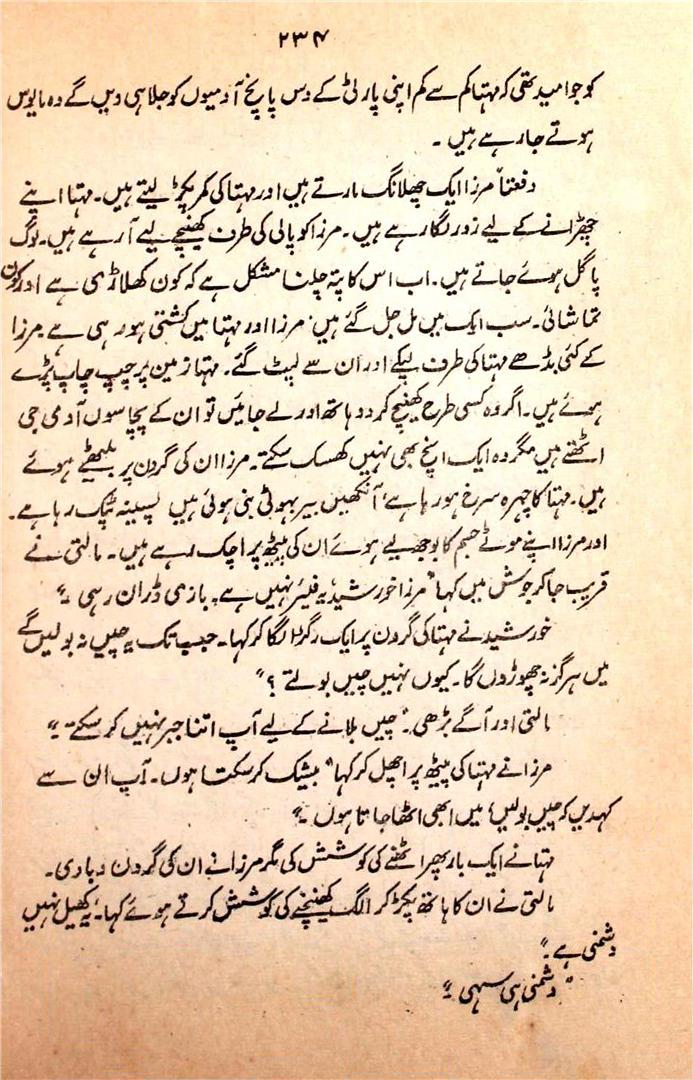 ۲۳۴
کو جو امید تھی کہ مہتا کم سے کم اپنی پارٹی کے دس پانچ آدمیوں کو جلا ہی دیں گے وہ مایوس
ہوتے جا رہے ہیں ۔
دفعتاً مرزا ایک چھلانگ مارتے ہیں اور مہتا کی کمر پکڑ لیتے ہیں۔ مہتا اپنے
چھڑانے کے لیے زور لگا رہے ہیں ۔ مرزا کو پالی کی طرف کھینچے لیے آ رہے ہیں۔ لوگ
پاگل ہوئے جاتے ہیں۔ اب اس کا پتہ چلنا مشکل ہے کہ کون کھلاڑی ہے اور کون
تماشائی۔ سب ایک میں مل جل گئے ہیں۔ مرزا اور مہتا میں کشتی ہو رہی ہے۔ مرزا
کے کئی بڈھے مہتا کی طرف لپکے اور ان سے لپٹ گئے۔ مہتا زمین پر چپ چاپ پڑے
ہوئے ہیں۔ اگر وہ کسی طرح کھینچ کر دو ہاتھ اور لے جائیں تو ان کے پچاسوں آدمی جی
اٹھتے ہیں مگر وہ ایک انچ بھی نہیں کھسک سکتے۔ مرزا ان کی گردن پر بیٹھے ہوئے
ہیں۔ مہتا کا چہرہ سرخ ہو رہا ہے، آنکھیں بیر بہوٹی بنی ہوئی ہیں پسینہ ٹپک رہا ہے۔
اور مرزا اپنے موٹے جسم کا بوجھ لیے ہوئے ان کی پیٹھ پر اچک رہے ہیں ۔ مالتی نے
قریب جا کر جوش میں کہا "مرزا خورشید یہ فیئر نہیں ہے۔ بازی ڈران رہی ۔"
خورشید نے مہتا کی گردن پر ایک رگڑا لگا کر کہا۔ جب تک یہ چیں نہ بولیں گے
میں ہرگز نہ چھوڑوں گا۔ کیوں نہیں چیں بولتے ؟"
مالتی اور آگے بڑھی۔ "چیں بلانے کے لیے آپ اتنا جبر نہیں کر سکتے ۔"
مرزا نے مہتا کی پیٹھ پر اچھل کر کہا "بیشک کر سکتا ہوں۔ آپ ان سے
کہدیں کہ چیں بولیں، میں ابھی اٹھا جاتا ہوں ۔"
مہتا نے ایک بار پھر اٹھنے کی کوشش کی مگر مرزا نے ان کی گردن دبا دی۔
مالتی نے ان کا ہاتھ پکڑ کر الگ کھینچنے کی کوشش کرتے ہوئے کہا۔ "یہ کھیل نہیں
دشمنی ہے ۔"
"دشمنی ہی سہی ۔"